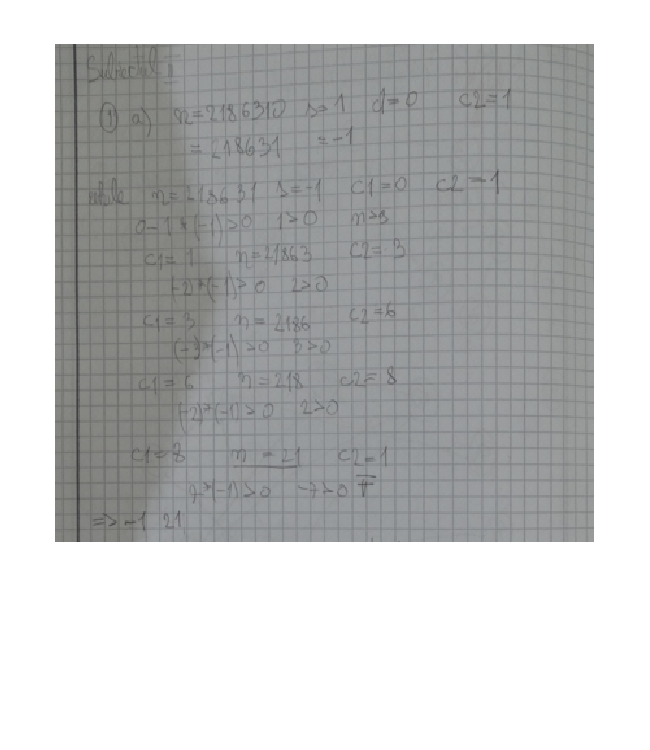 Subiectul II
① a) n=2186310 s=1 c1=0 c2=1
= 218631 =-1
while n=218631 s=-1 c1=0 c2=1
0-1*(-1)>0 1>0 n>9
c1=1 n=21863 c2=3
(-2)*(-1)>0 2>0
c1=3 n=2186 c2=6
(-3)*(-1)>0 3>0
c1=6 n=218 c2=8
(-2)*(-1)>0 2>0
c1=8 n=21 c2=1
7*(-1)>0 -7>0 F
=> -1 21